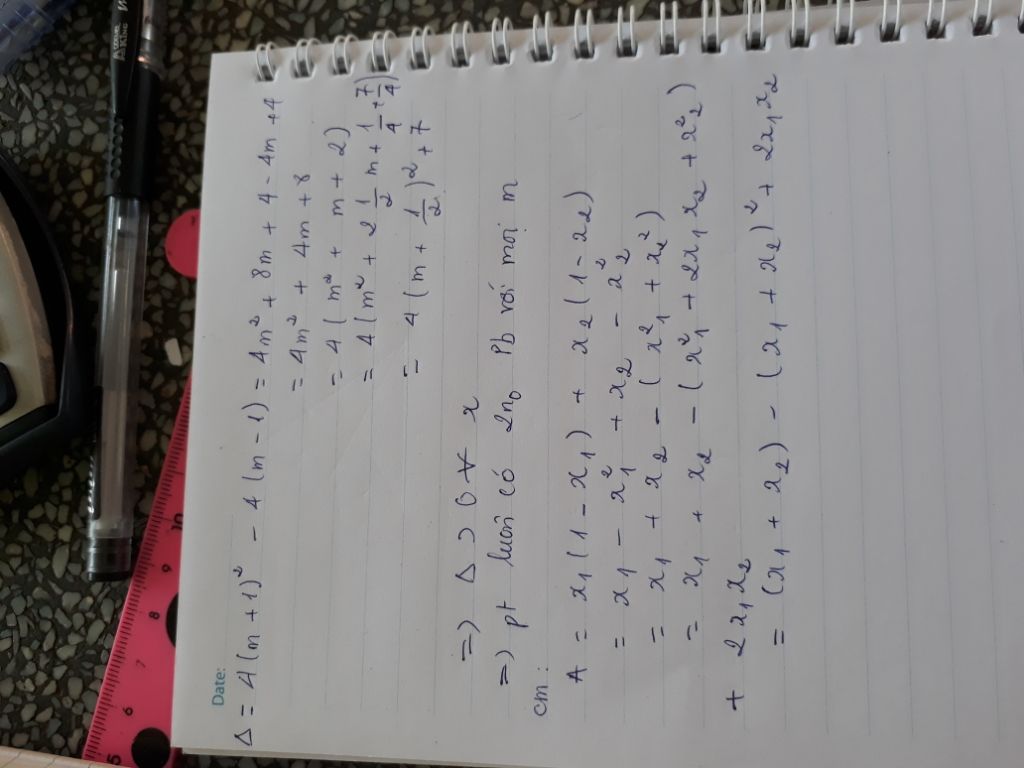 Date:
Δ = 4(m+1)² - 4(m-1) = 4m² + 8m + 4 - 4m + 4
= 4m² + 4m + 8
= 4(m² + m + 2)
= 4(m² + 2 1/2 m + 1/4 + 7/4)
= 4(m + 1/2)² + 7
=) Δ > 0 ∀ x
=) pt luôn có 2n₀ Pb với mọi m
cm:
A = x₁(1 - x₁) + x₂(1 - x₂)
= x₁ - x₁² + x₂ - x₂²
= x₁ + x₂ - (x₁² + x₂²)
= x₁ + x₂ - (x₁² + 2x₁x₂ + x₂²)
+ 2x₁x₂
= (x₁ + x₂) - (x₁ + x₂)² + 2x₁x₂
5 6 7 8 9 10